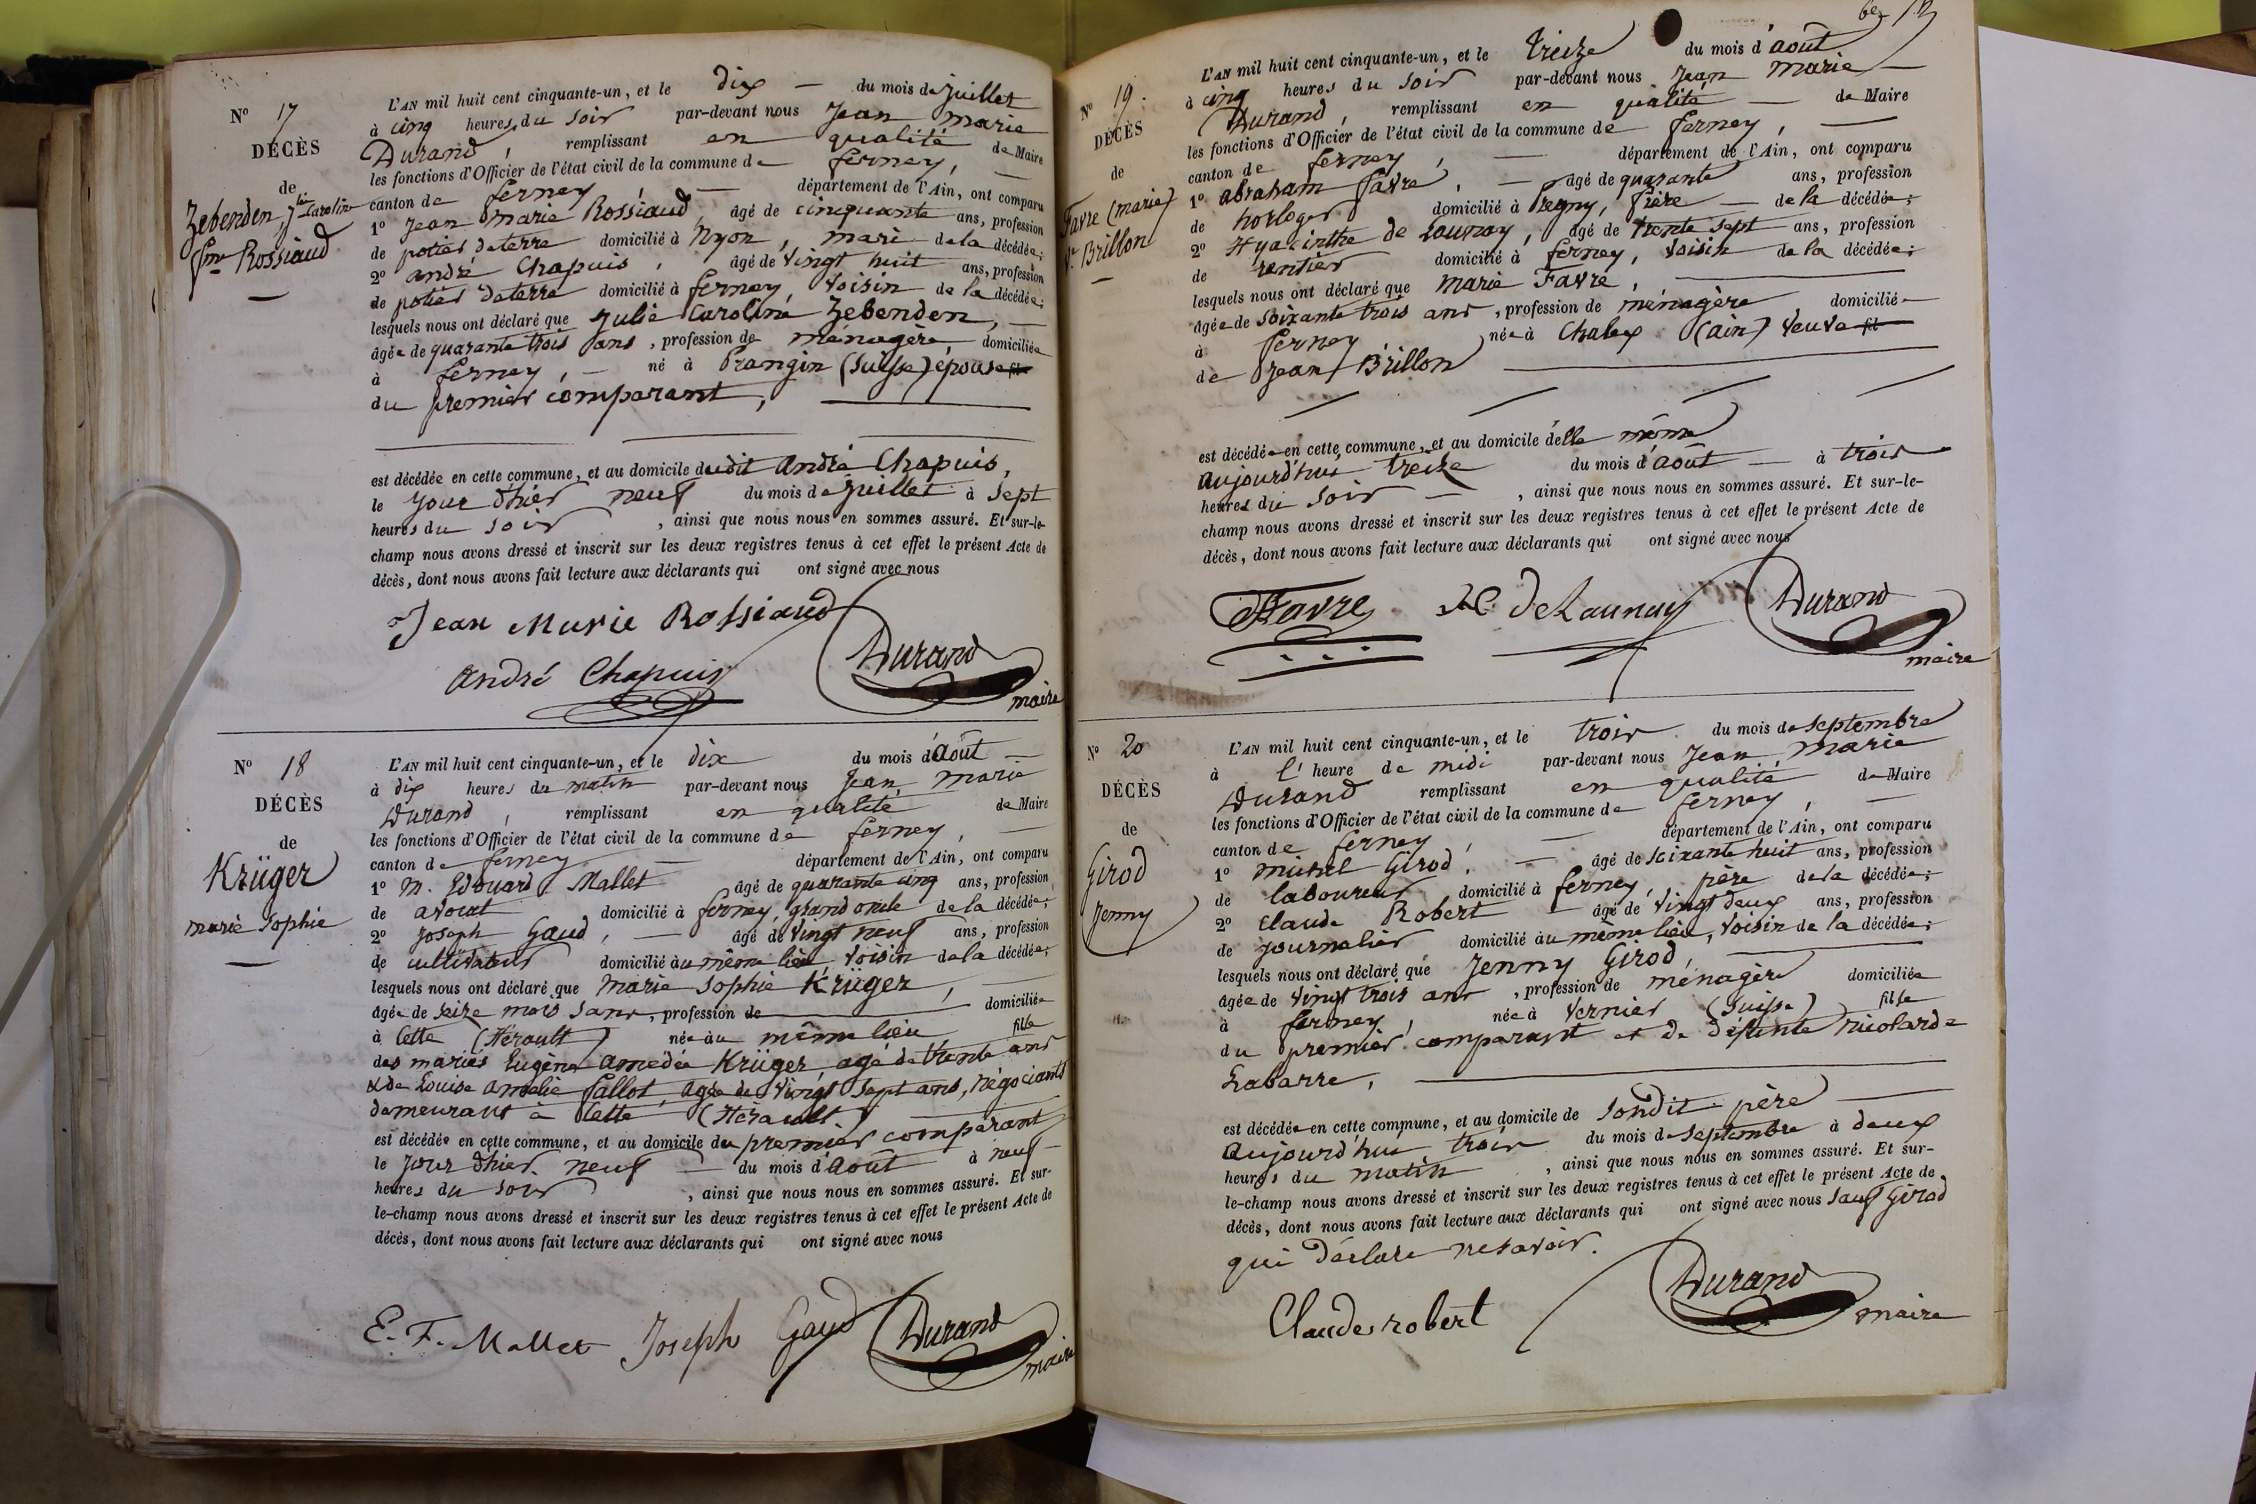 N° 17
DÉCÈS
de
Zebenden, Jlie Caroline
fme Rossiaud
L'AN mil huit cent cinquante-un, et le dix — du mois de Juillet
à cinq heures du soir par-devant nous Jean Marie
Durand, remplissant en qualité de Maire
les fonctions d'Officier de l'état civil de la commune de ferney, —
canton de ferney — département de l'Ain, ont comparu
1° Jean Marie Rossiaud, âgé de cinquante ans, profession
de potier deterre domicilié à Nyon, mari de la décédée;
2° andré Chapuis, âgé de vingt huit ans, profession
de potier deterre domicilié à ferney, voisin de la décédée;
lesquels nous ont déclaré que Julie Caroline Zebenden, —
âgée de quarante trois ans, profession de ménagère domiciliée
à ferney, — né à Prangin (Suisse) épouse
du premier comparant, —
est décédée en cette commune, et au domicile dudit andré Chapuis,
le jour d'hier neuf du mois de Juillet à sept
heures du soir, ainsi que nous nous en sommes assuré. Et sur-le-
champ nous avons dressé et inscrit sur les deux registres tenus à cet effet le présent Acte de
décès, dont nous avons fait lecture aux déclarants qui ont signé avec nous
Jean Marie Rossiaud
André Chapuis Durand
maire
N° 18
DÉCÈS
de
Krüger
marie Sophie
L'AN mil huit cent cinquante-un, et le dix du mois d'août —
à dix heures du matin par-devant nous Jean Marie
Durand, remplissant en qualité de Maire
les fonctions d'Officier de l'état civil de la commune de ferney, —
canton de ferney — département de l'Ain, ont comparu
1° M. Edouard Mallet âgé de quarante cinq ans, profession
de avocat domicilié à ferney, grand oncle de la décédée;
2° Joseph Gaud, — âgé de vingt neuf ans, profession
de cultivateur domicilié au même lieu, voisin de la décédée;
lesquels nous ont déclaré que Marie Sophie Krüger, —
âgée de seize mois sans, profession de — domiciliée
à Cette (Hérault) née au même lieu fille
des mariés Eugène Amedée Krüger, agé de trente ans
& de Louise Amélie Pallot, agée de vingt sept ans, négociants
demeurant à Cette (Hérault)
est décédée en cette commune, et au domicile du premier comparant
le jour d'hier neuf — du mois d'août à neuf
heures du soir, ainsi que nous nous en sommes assuré. Et sur-
le-champ nous avons dressé et inscrit sur les deux registres tenus à cet effet le présent Acte de
décès, dont nous avons fait lecture aux déclarants qui ont signé avec nous
E. F. Mallet Joseph Gaud Durand
maire
N° 19.
DÉCÈS
de
Favre (marie)
Ve Brillon
L'AN mil huit cent cinquante-un, et le treize du mois d'août
à cinq heures du soir par-devant nous Jean Marie —
Durand, remplissant en qualité — de Maire
les fonctions d'Officier de l'état civil de la commune de ferney, —
canton de ferney, — département de l'Ain, ont comparu
1° abraham favre, — âgé de quarante ans, profession
de horloger domicilié à Pregny, frère — de la décédée;
2° Hyacinthe de Launay, âgé de trente sept ans, profession
de rentier domicilié à ferney, voisin de la décédée;
lesquels nous ont déclaré que Marie Favre, —
âgée de soixante trois ans, profession de ménagère domicilié
à ferney née à Chalex (ain) veuve
de Jean Brillon —
est décédée en cette commune, et au domicile d'elle même
aujourd'hui treize du mois d'août — à trois
heures du soir —, ainsi que nous nous en sommes assuré. Et sur-le-
champ nous avons dressé et inscrit sur les deux registres tenus à cet effet le présent Acte de
décès, dont nous avons fait lecture aux déclarants qui ont signé avec nous
Favre De Launay Durand
maire
N° 20
DÉCÈS
de
Girod
Jenny
L'AN mil huit cent cinquante-un, et le trois du mois de septembre
à l'heure de midi par-devant nous Jean Marie
Durand remplissant en qualité de Maire
les fonctions d'Officier de l'état civil de la commune de ferney, —
canton de ferney, — département de l'Ain, ont comparu
1° michel Girod, — âgé de soixante huit ans, profession
de laboureur domicilié à ferney, père de la décédée;
2° Claude Robert — âgé de vingt deux ans, profession
de journalier domicilié au même lieu, voisin de la décédée;
lesquels nous ont déclaré que Jenny Girod, —
âgée de vingt trois ans, profession de ménagère domiciliée
à ferney, née à Vernier (Suisse) fille
du premier comparant et de défunte nicolarde
Labarre, —
est décédée en cette commune, et au domicile de sondit père —
aujourd'hui trois du mois de septembre à deux
heures du matin, ainsi que nous nous en sommes assuré. Et sur-
le-champ nous avons dressé et inscrit sur les deux registres tenus à cet effet le présent Acte de
décès, dont nous avons fait lecture aux déclarants qui ont signé avec nous sauf Girod
qui déclare ne savoir.
Claude robert Durand
maire